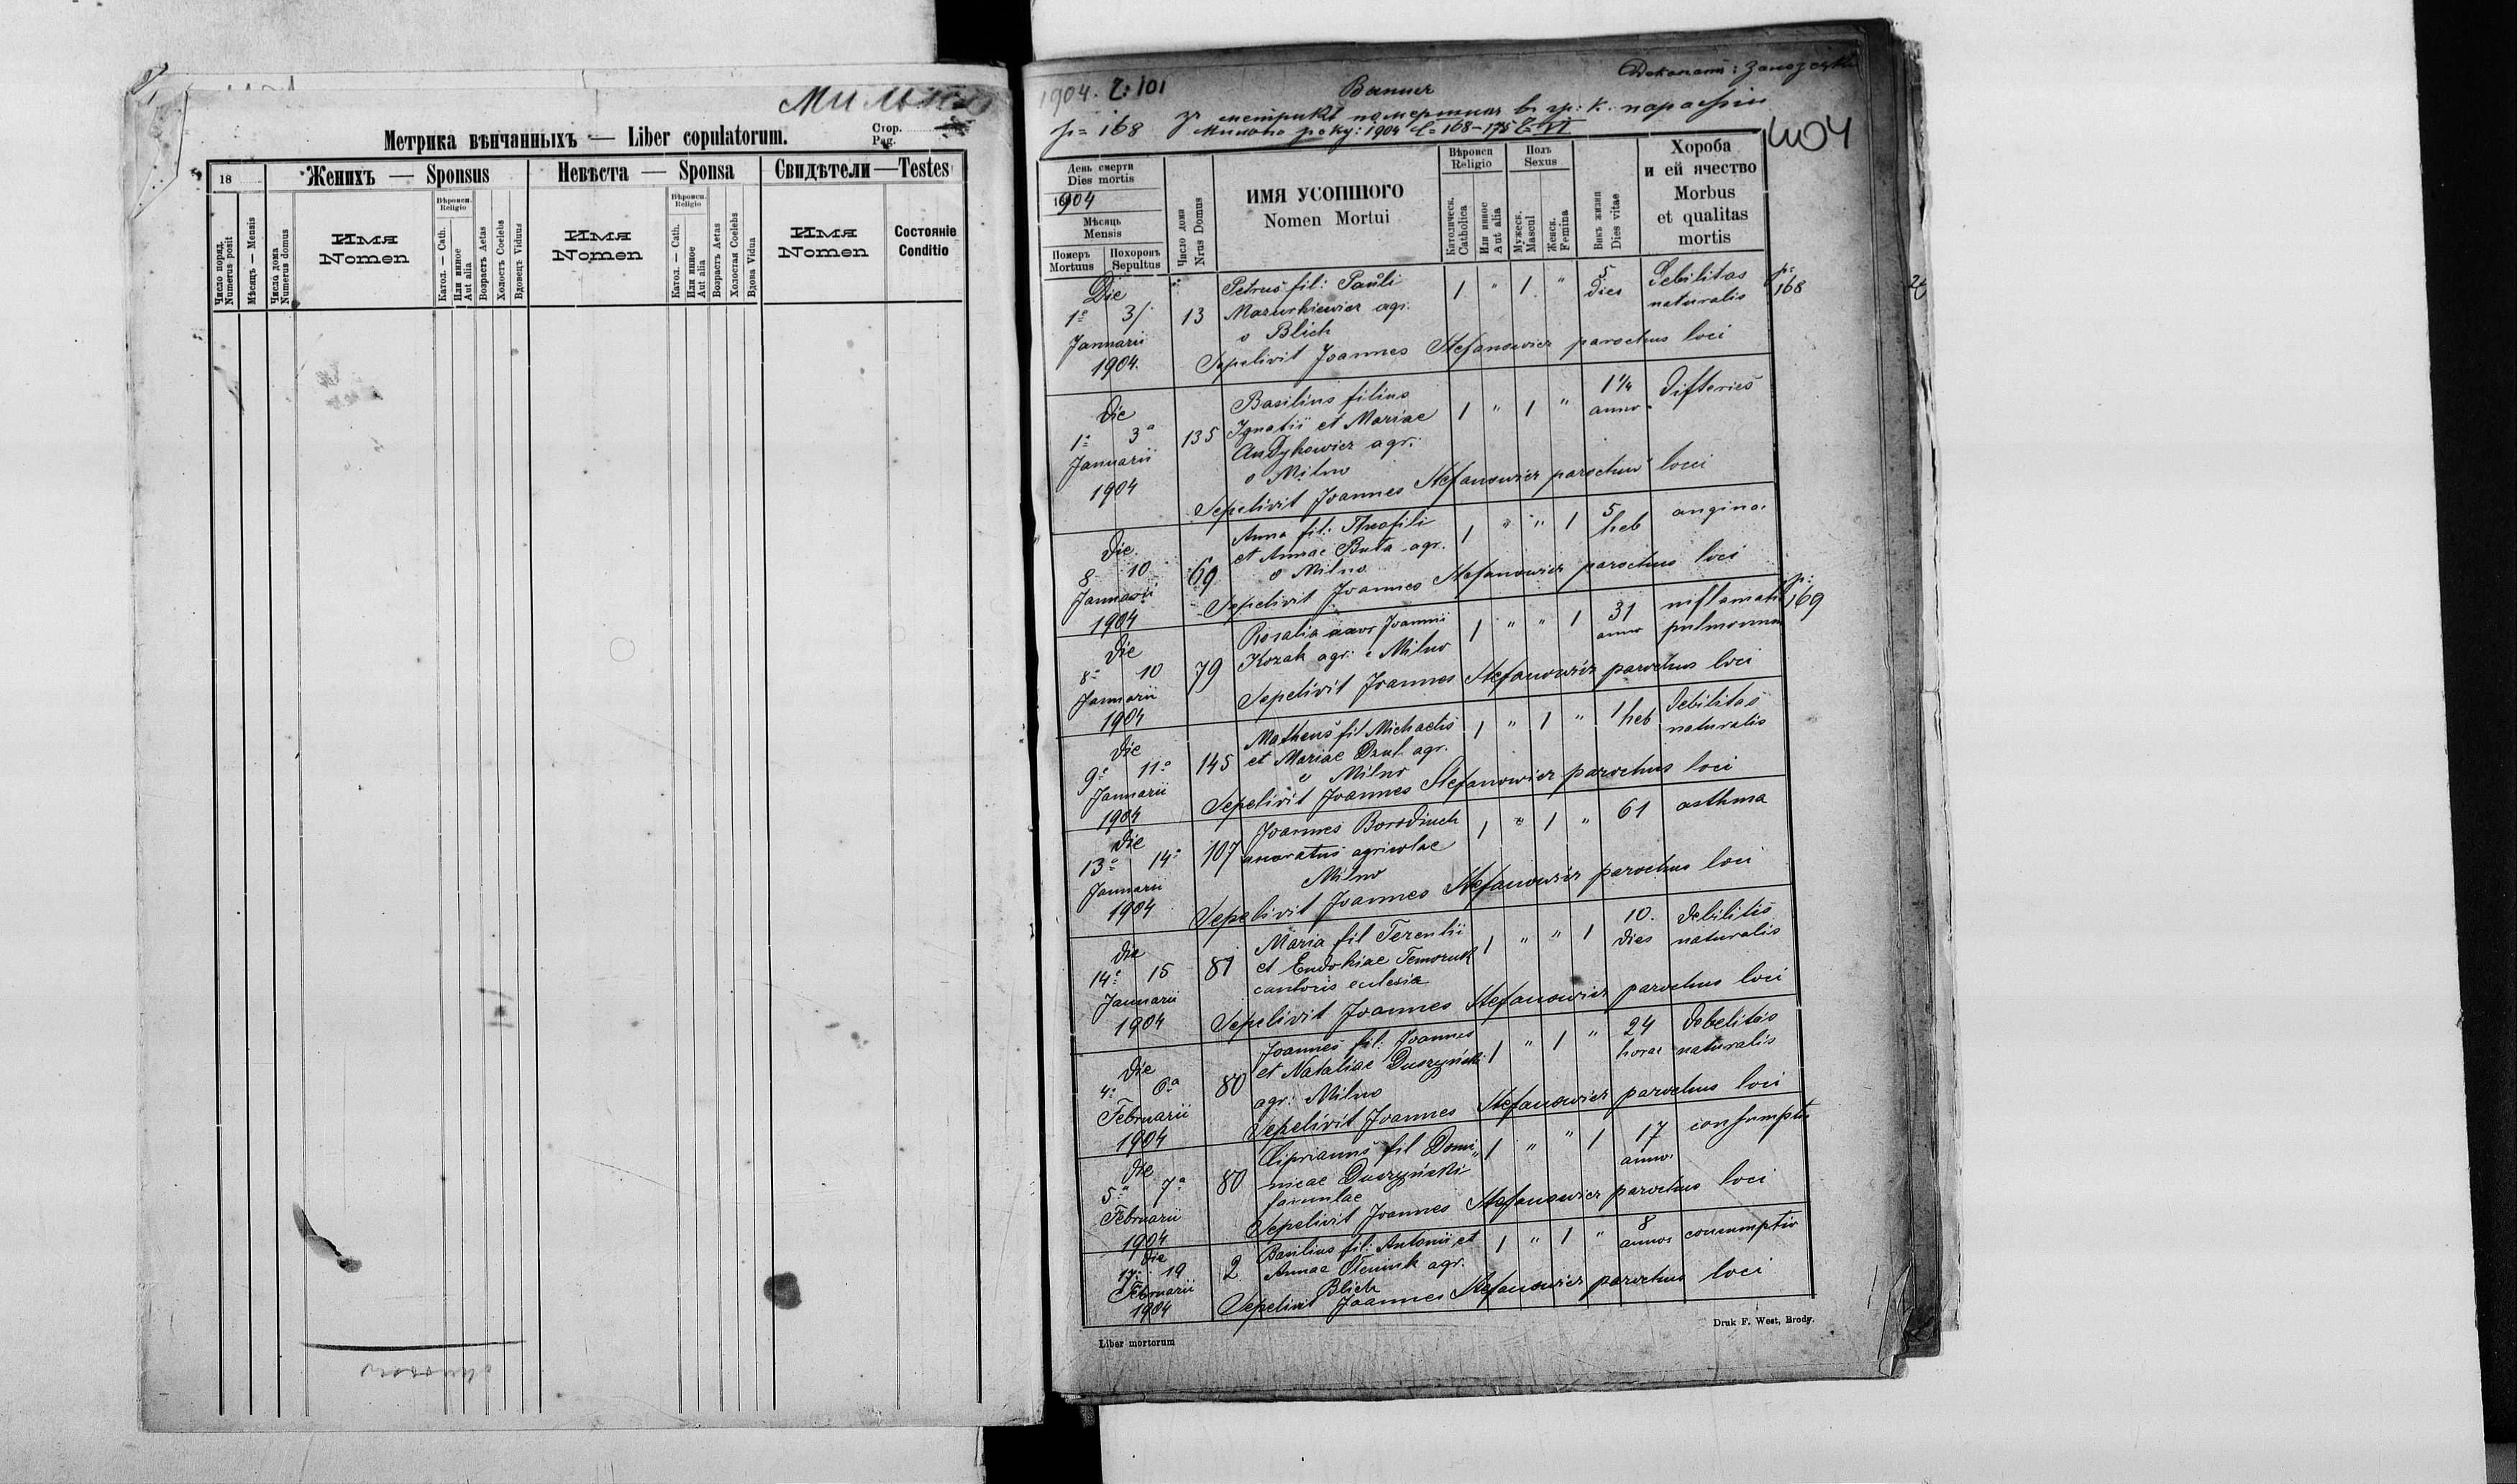 Мильно
Метрика вѣнчанныхъ — Liber copulatorum.
Стор.
Pag.
18
Женихъ — Sponsus
Невѣста — Sponsa
Свидѣтели — Testes
Число поряд.
Numerus posit
Мѣсяць — Mensis
Число дома
Numerus domus
Имя
Nomen
Вѣроисп.
Religio
Катол. — Cath.
Или инное
Aut alia
Возрастъ Aetas
Холостъ Coelebs
Вдовецъ Viduus
Имя
Nomen
Вѣроисп.
Religio
Катол. — Cath.
Или инное
Aut alia
Возрастъ Aetas
Холостая Coelebs
Вдова Vidua
Имя
Nomen
Состояніе
Conditio
1904. 2: 101
p= 168
1904
День смерти
Dies mortis
1904
Мѣсяць
Mensis
Померъ
Mortuus
Похоронъ
Sepultus
Число дома
Nrus Domus
ИМЯ УСОПШОГО
Nomen Mortui
Вѣроисп
Religio
Католическ.
Catholica
Или инное
Aut alia
Полъ
Sexus
Мужеск.
Mascul
Женск.
Femina
Викъ жизни
Dies vitae
Хороба
и ей ячество
Morbus
et qualitas
mortis
Die
1º 3/
Januarii
1904.
13
Petrus fil: Pauli
Mazurkiewicz agr.
o Blich
1 " 1 "
5
dies
Debilitas
naturalis
p=
168
Sepelivit Joannes Stefanowicz parochus loci
Die
1º 3º
Januarii
1904
135
Basilius filius
Ignatii et Mariae
Andykowicz agr.
o Milno
1 " 1 "
1 1/4
anno
difteries
Sepelivit Joannes Stefanowicz parochus loci
Die
8 10
Januarii
1904
69
Anna fil:
et Annae Buta agr.
o Milno
1 " " 1
5
heb
angina
Sepelivit Joannes Stefanowicz parochus loci
Die
8º 10
Januarii
1904
79
Rosalia uxor Joannis
Kozak agr: e Milno
1 " " 1
31
anno
pulmonum
p:
169
Sepelivit Joannes Stefanowicz parochus loci
Die
9º 11º
Januarii
1904
145
Matheus fil Michaelis
et Mariae Dzul agr.
e Milno
1 " 1 "
1 heb
debilitas
naturalis
Sepelivit Joannes Stefanowicz parochus loci
Die
13º 14º
Januarii
1904
107
Joannes Borodiuch
uxoratus agricolae
Milno
1 " 1 "
61
asthma
Sepelivit Joannes Stefanowicz parochus loci
Die
14º 15
Januarii
1904
81
Maria fil Terentii
et Eudokiae
cantoris eclesia
1 " " 1
10.
dies
debilitis
naturalis
Sepelivit Joannes Stefanowicz parochus loci
Die
4º 6ª
Februarii
1904
80
Joannes fil: Joannes
et Nataliae Duszyński
agr: Milno
1 " 1 "
24
horae
debelitas
naturalis
Sepelivit Joannes Stefanowicz parochus loci
Die
5ª 7ª
Februarii
1904
80
Ciprianus fil Domi-
nicae Duszyński
famulae
1 " " 1
17
anno.
Sepelivit Joannes Stefanowicz parochus loci
Die
17º 19
Februarii
1904
2
Basilius fil: Antonii et
Annae Olejnik agr.
Blich
1 " 1 "
8
annos
consumptio
Sepelivit Joannes Stefanowicz parochus loci
Liber mortorum
Druk F. West, Brody.